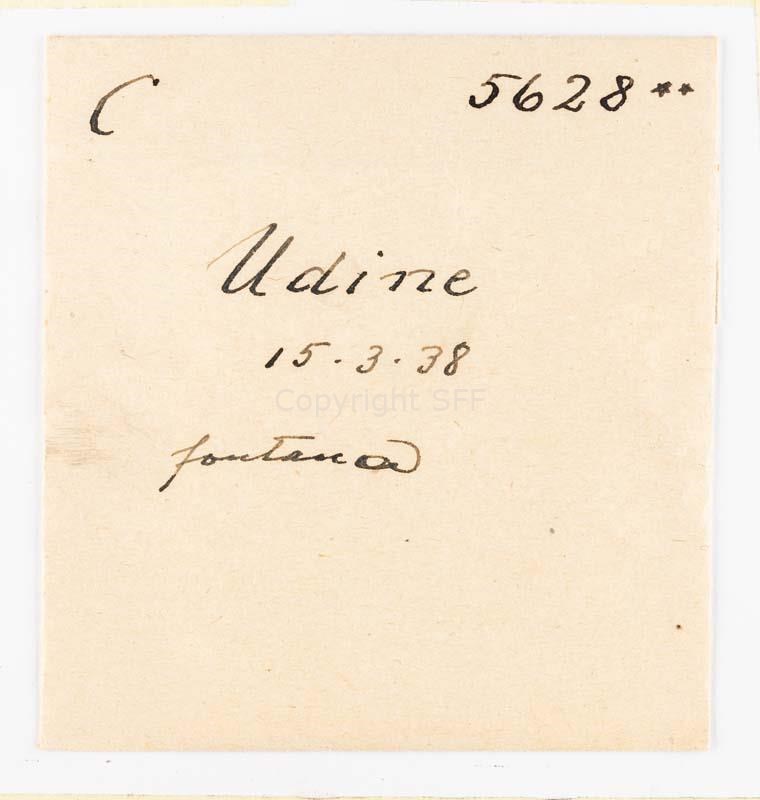 C 5628**
Udine
15.3.38
Copyright SFF
fontana